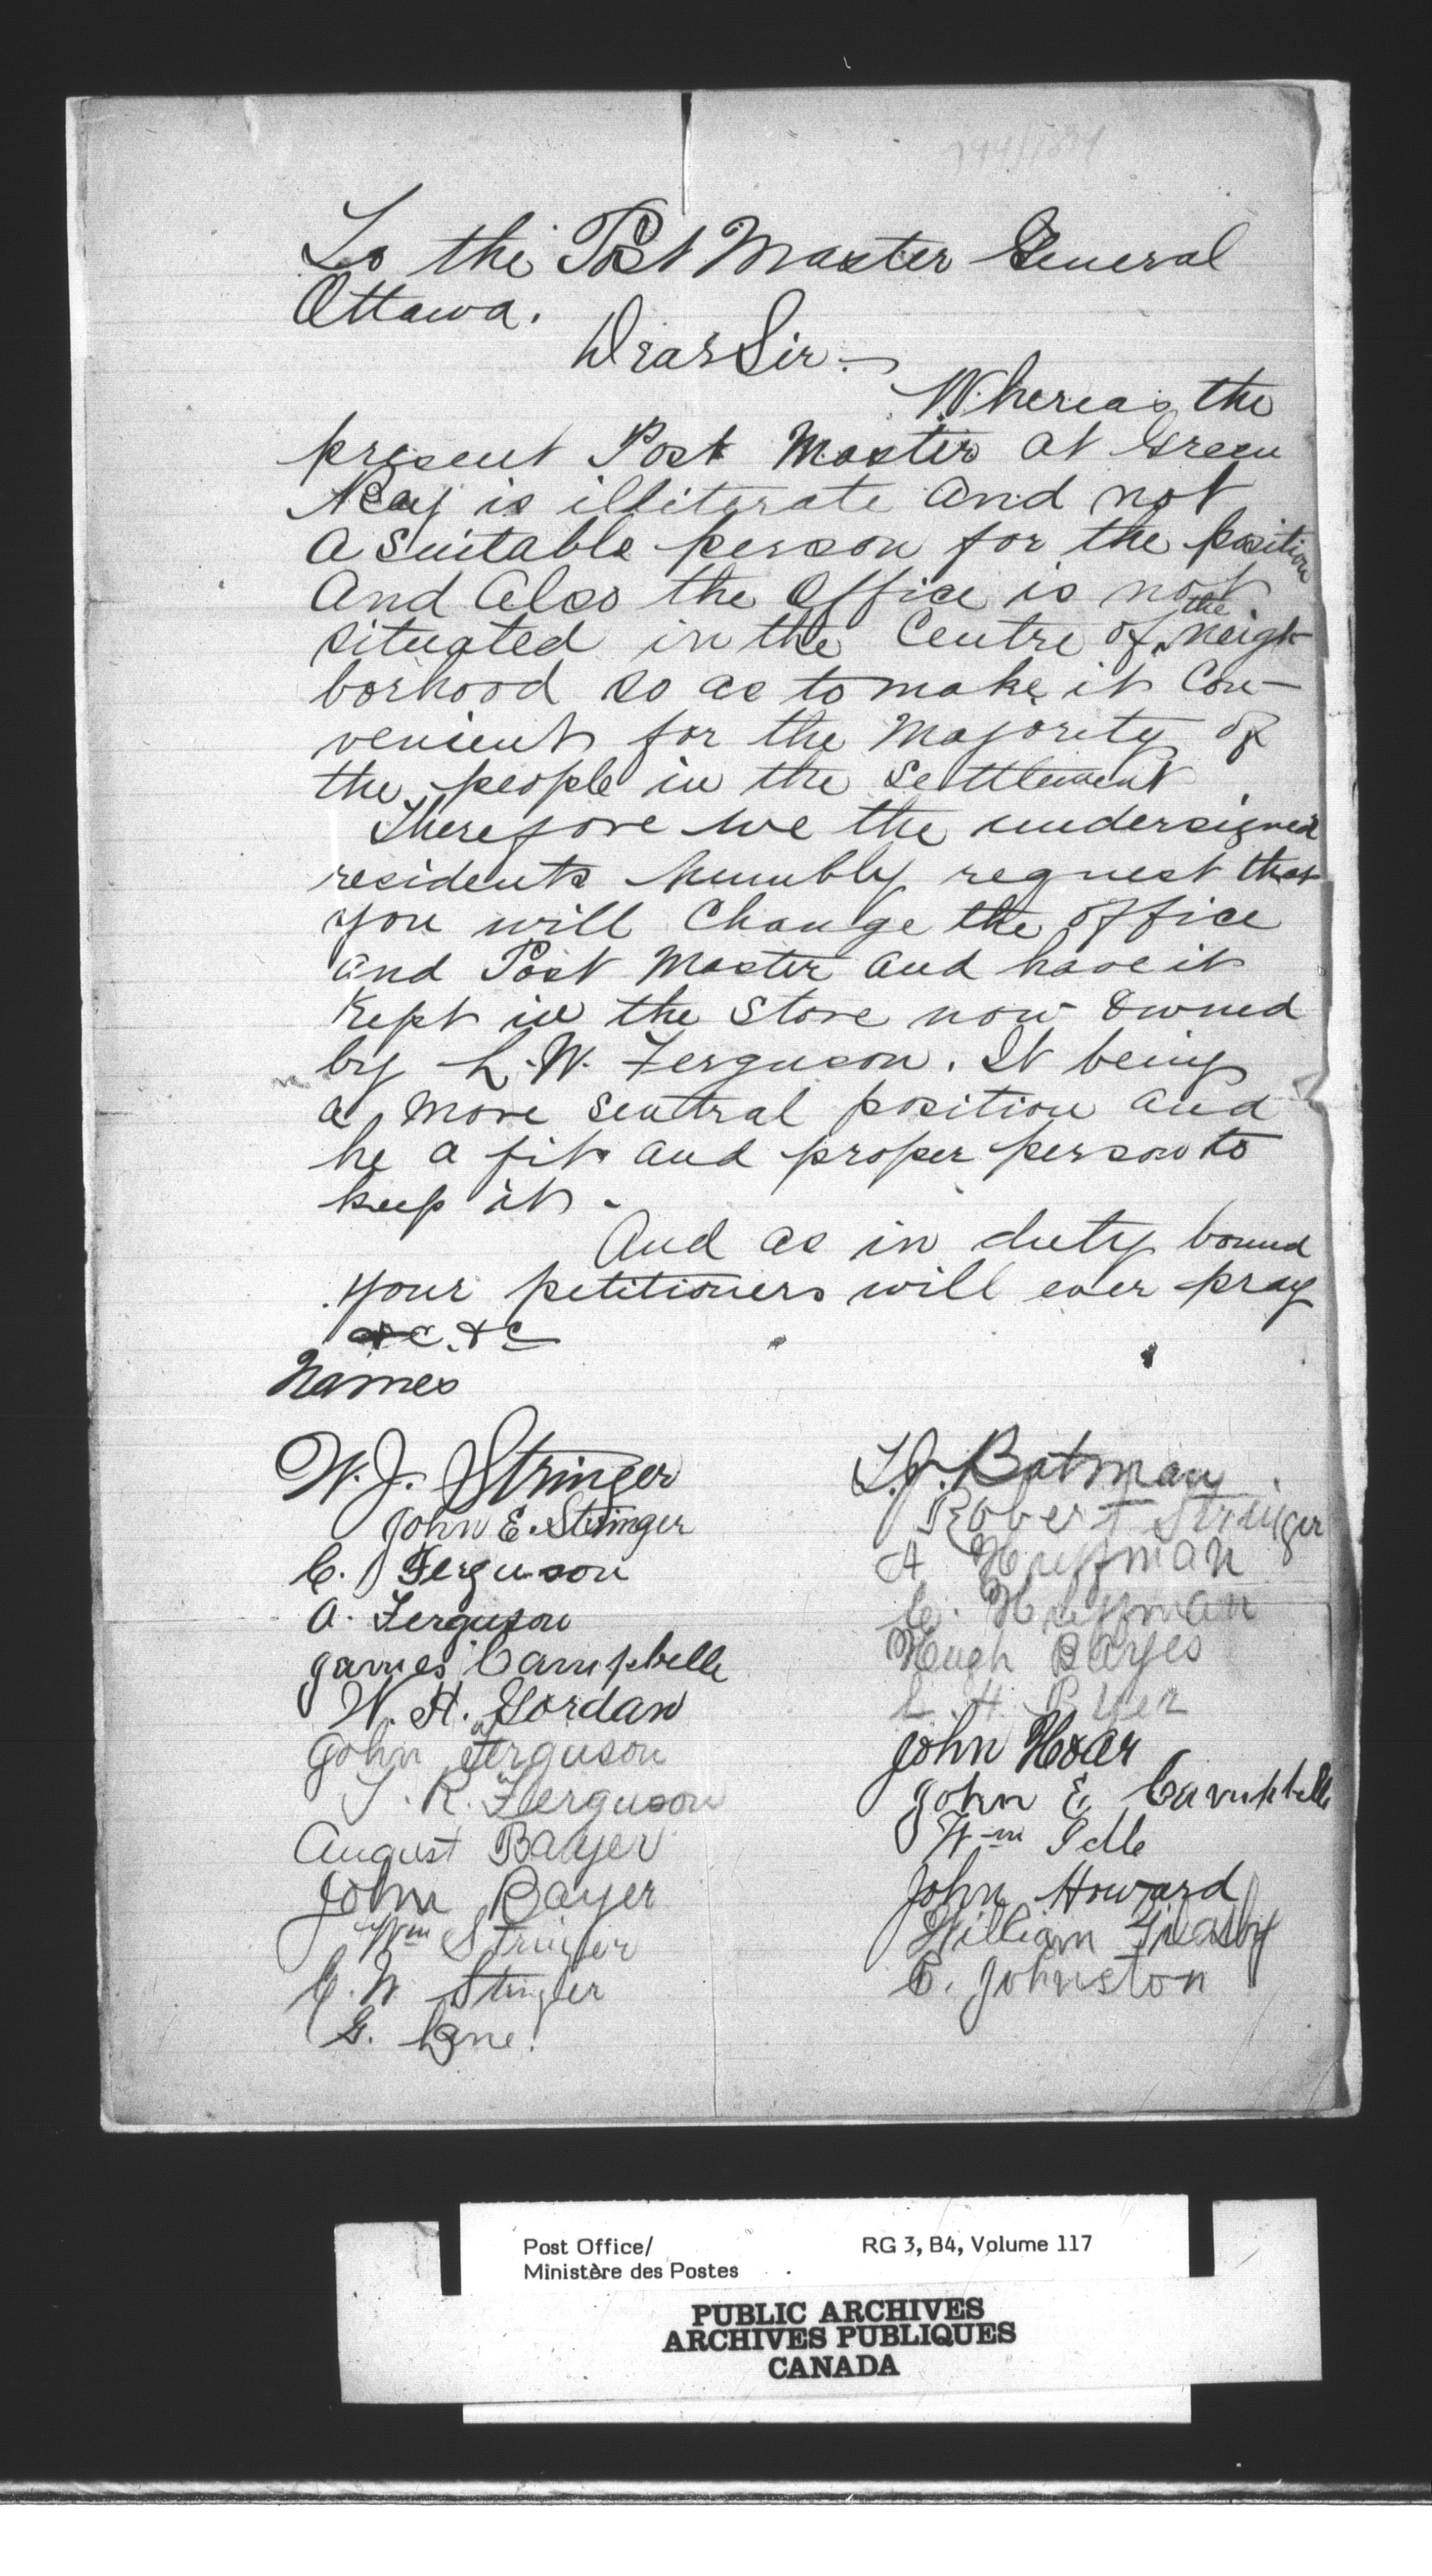 To the Post Master General
Ottawa.
Dear Sir.
Whereas the
present Post Master at Green
Bay is illiterate and not
a suitable person for the position
And Also the Office is not
situated in the Centre of the neigh
borhood so as to make it Con-
venient for the Majority of
the people in the Settlement
Therefore we the undersigned
residents humbly request that
you will Change the office
and Post Master and have it
Kept in the Store now owned
by L. W. Ferguson. It being
a more sentral position and
he a fit and proper person to
keep it.
And as in duty bound
your petitioners will ever pray
&c. &c
Names
W. J. Stringer
John E. Stringer
C. Ferguson
A. Ferguson
James Campbelle
W. H. Gordan
John Ferguson
J. R. Ferguson
August Bayer
John Bayer
Wm Stringer
C. W Stringer
G. Lane.
L. J. Batman
Robert Stringer
A Huffman
C. Huffman
Hugh Bayes
L. H. Byer
John Hoar
John E. Campbelle
Wm
John Howard
William
C. Johnston
Post Office/
Ministère des Postes
RG 3, B4, Volume 117
PUBLIC ARCHIVES
ARCHIVES PUBLIQUES
CANADA